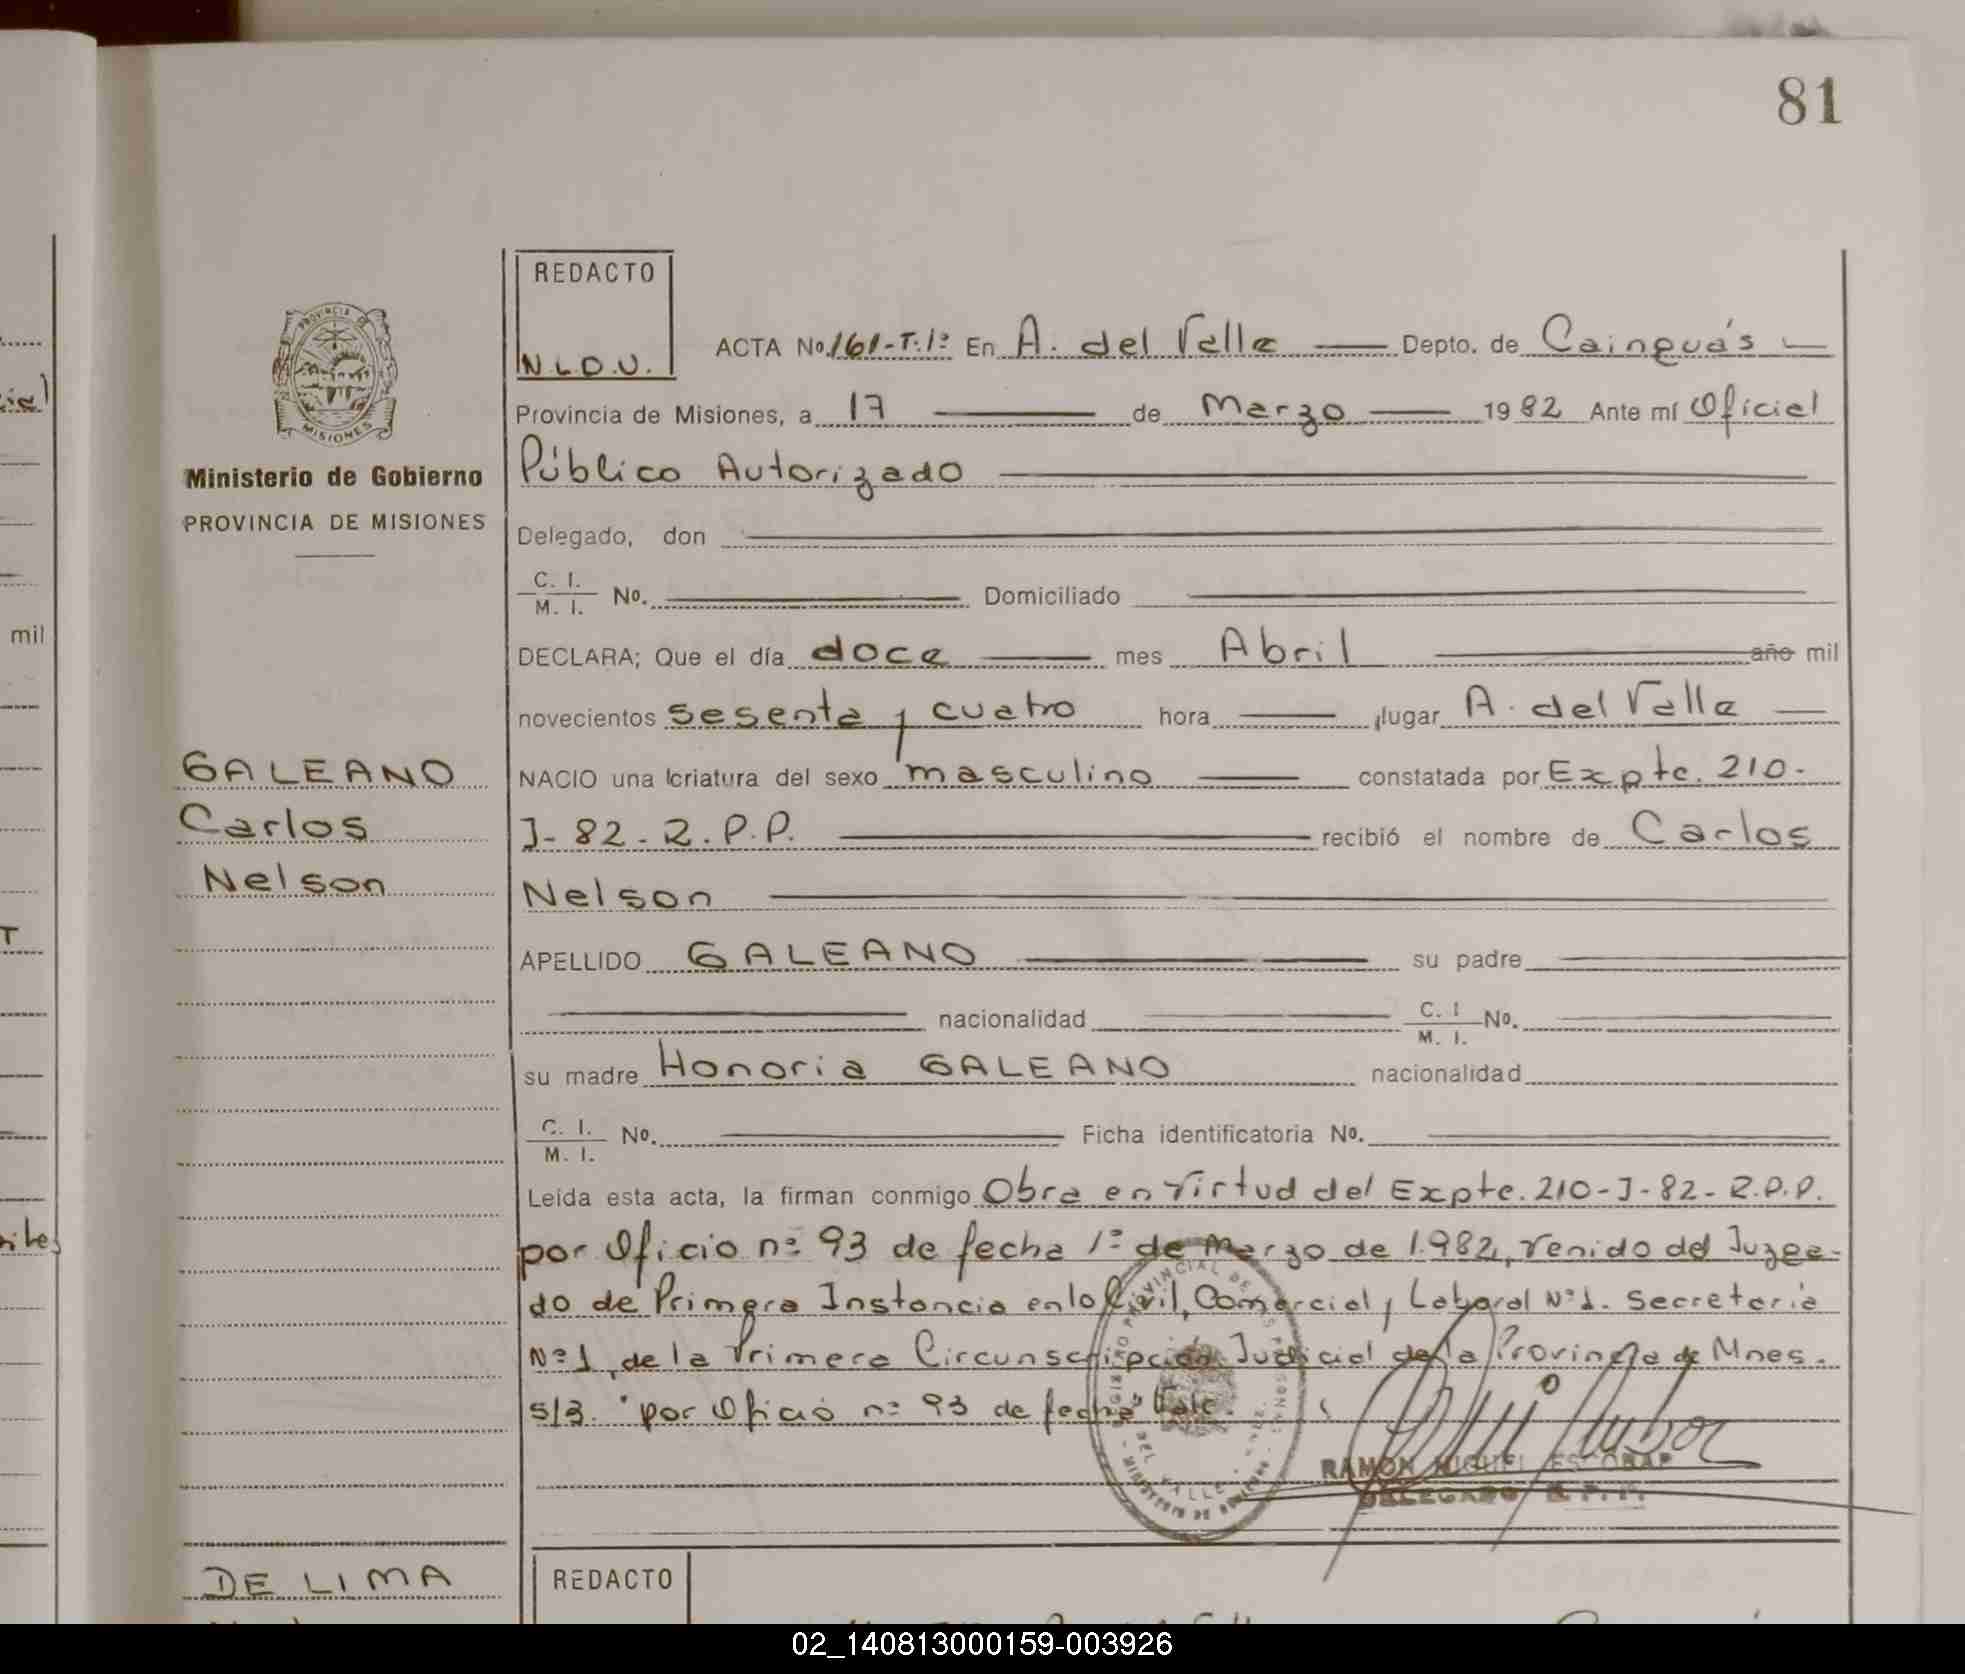 81
REDACTO
N.L.D.V.
PROVINCIA DE
MISIONES
Ministerio de Gobierno
PROVINCIA DE MISIONES
ACTA No. 161-T:1º En A. del Valle Depto. de Cainguás
Provincia de Misiones, a 17 de Marzo 1982 Ante mí Oficial
Público Autorizado
Delegado, don
C. I.
M. I. No. Domiciliado
DECLARA; Que el día doce mes Abril año mil
novecientos sesenta y cuatro hora , lugar A. del Valle
NACIO una criatura del sexo masculino constatada por Expte. 210-
J-82-R.P.P. recibió el nombre de Carlos
Nelson
APELLIDO GALEANO su padre
nacionalidad C. I
M. I. No.
su madre Honoria GALEANO nacionalidad
C. I.
M. I. No. Ficha identificatoria No.
Leída esta acta, la firman conmigo Obra en virtud del Expte. 210-J-82-R.P.P.
por Oficio nº 93 de fecha 1º de Marzo de 1.982, venido del Juzga-
do de Primera Instancia en lo Civil, Comercial y Laboral Nº1. Secretaria
Nº1, de la Primera Circunscripción Judicial de la Provincia de Mnes.
s/3. "por Oficio nº 93 de fecha" Vale.
RAMON MIGUEL ESCOBAR
DELEGADO R.P.P.
GALEANO
Carlos
Nelson
DE LIMA
REDACTO
mil
02_140813000159-003926